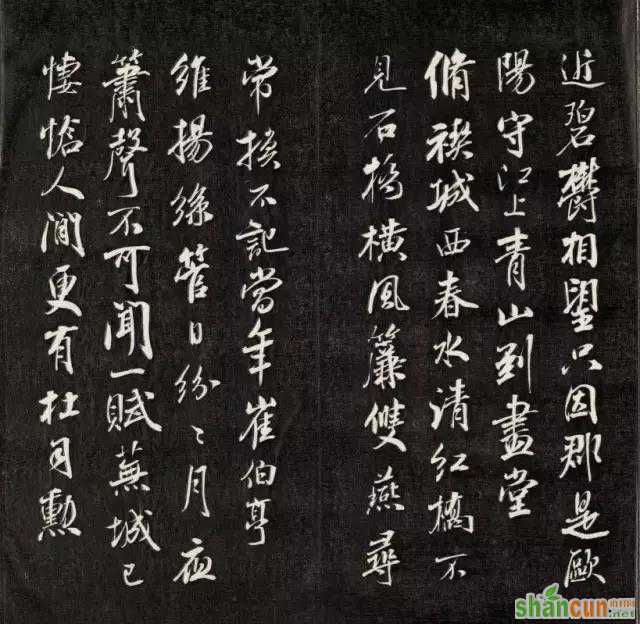 近碧欝相望只因郡是歐
陽守江上青山到畫堂
脩禊城西春水清紅橋不
見石橋橫風簾雙燕尋
常不記當年崔伯亭
維揚絲管日紛〻月夜
簫聲不可聞一賦蕪城已
悽愴人間更有杜司勳
shancun